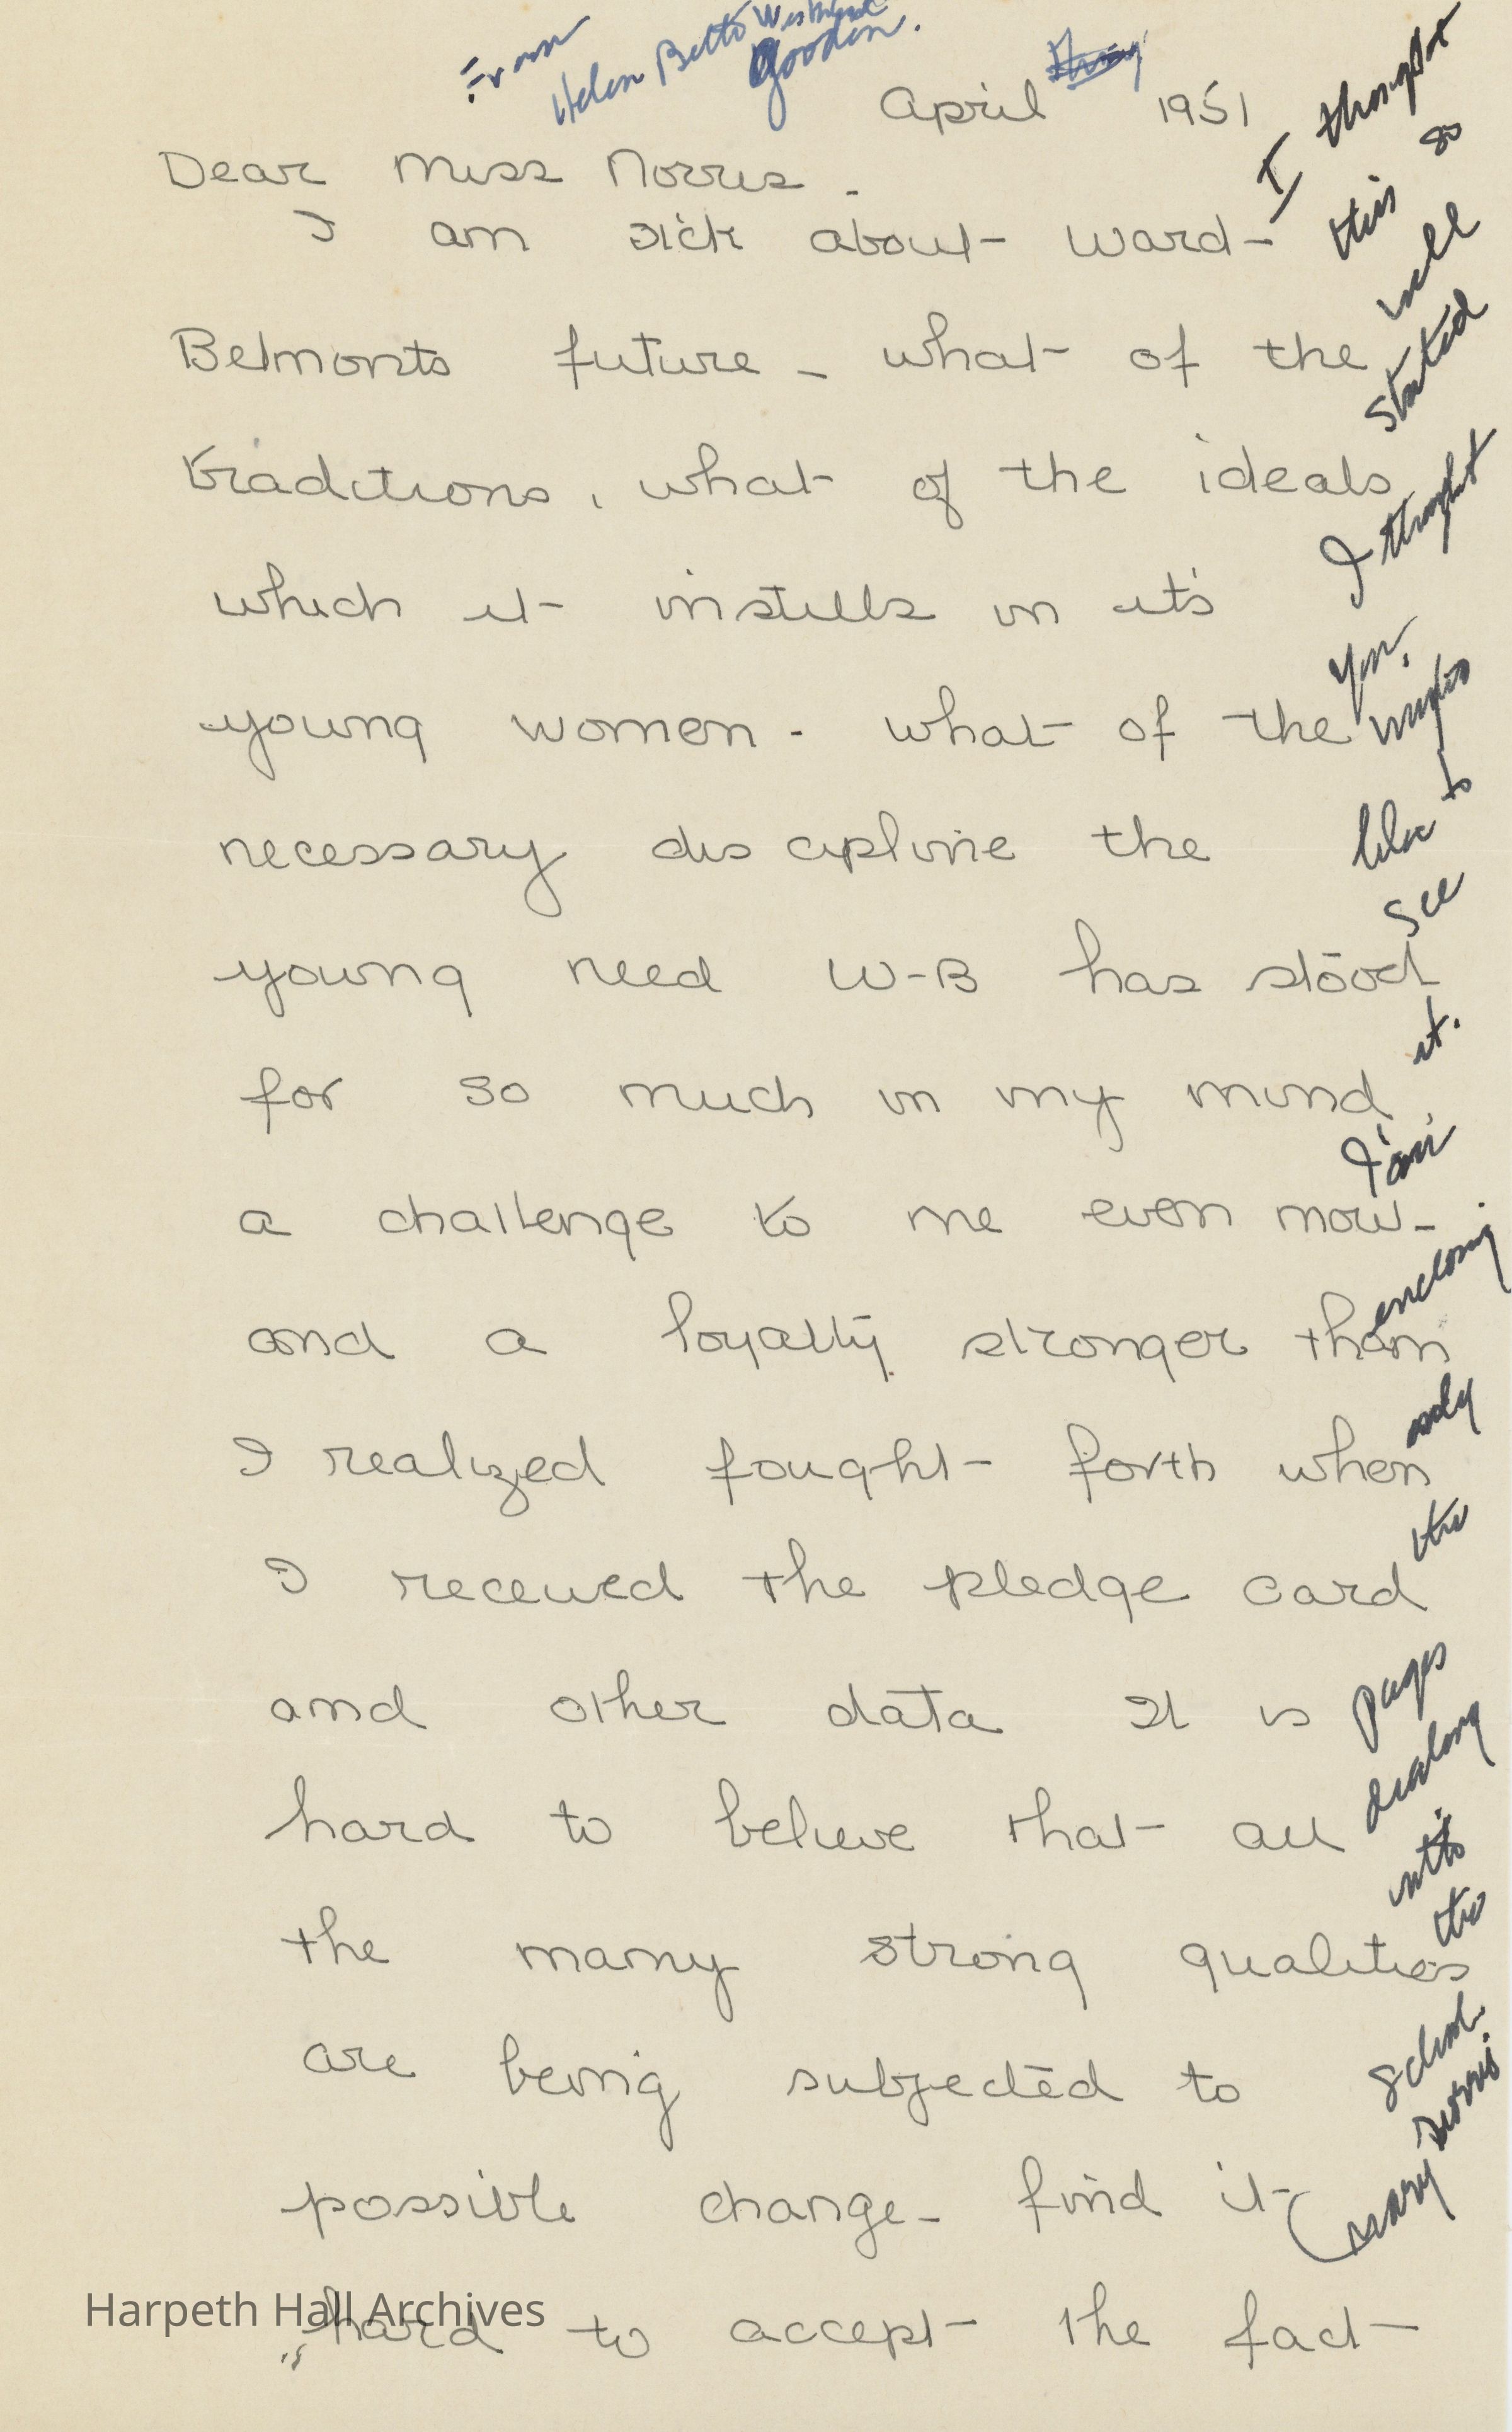 From
Helen Betts
Gooden.
April 1951
Dear Miss Norris.
I am sick about Ward-
Belmonts future - what of the
traditions, what of the ideals
which it instills in it's
young women - what of the
necessary discipline the
young need W-B has stood
for so much in my mind,
a challenge to me even now -
and a loyalty stronger than
I realized fought forth when
I received the pledge card
and other data It is
hard to believe that all
the many strong qualities
are being subjected to
possible change - find it
hard to accept the fact
I thought
this so
well
stated
I thought
you
might
like to
see
it.
I am
enclosing
only
the
pages
dealing
with
the
school.
Mary Norris
Harpeth Hall Archives